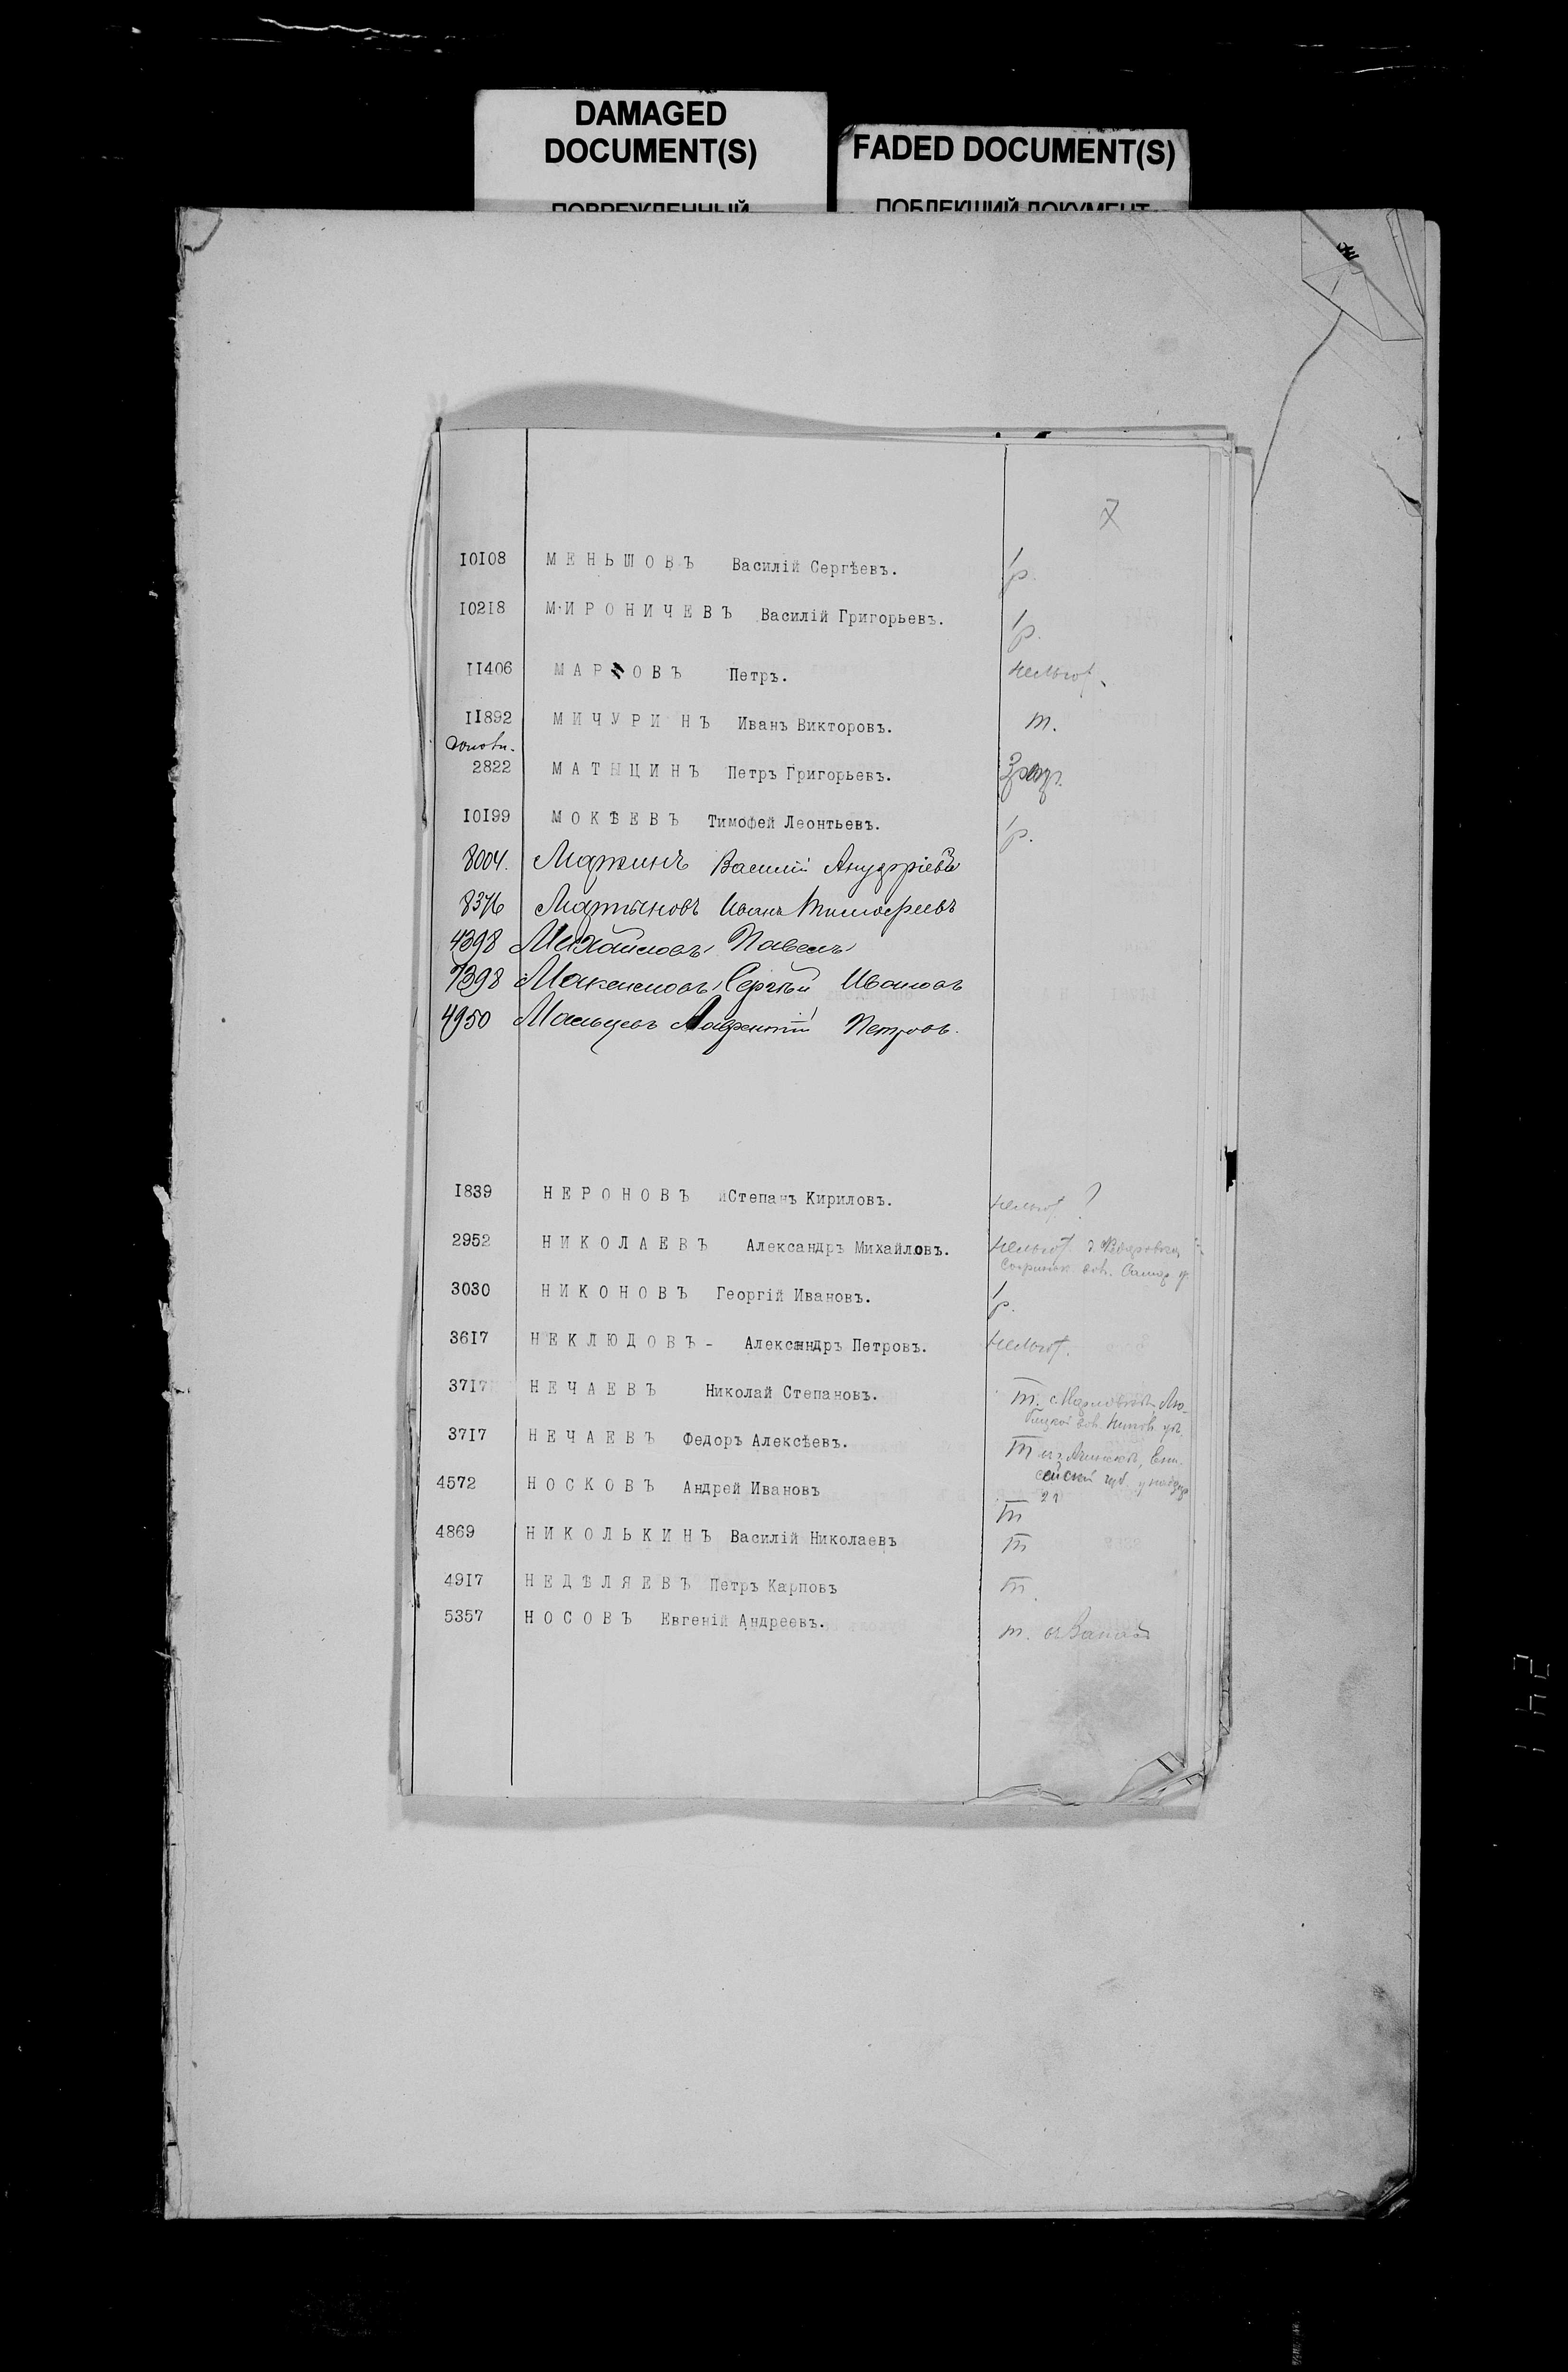 DAMAGED
DOCUMENT(S)
ПОВРЕЖДЕННЫЙ
FADED DOCUMENT(S)
ПОБЛЕКШИЙ ДОКУМЕНТ
7
10108 МЕНЬШОВЪ Василій Сергѣевъ. 1 р.
10218 МИРОНИЧЕВЪ Василій Григорьевъ. 1 р.
11406 МАРКОВЪ Петръ. нельгот.
11892 МИЧУРИНЪ Иванъ Викторовъ. т.
2822 МАТЫЦИНЪ Петръ Григорьевъ. 3 разр.
10199 МОКѢЕВЪ Тимофей Леонтьевъ. 1 р.
8004. Маркинъ Василій
8376 Мартыновъ Иванъ Тимофеевъ
4398 Михайловъ Павелъ
7398 Максимовъ Сергѣй Ивановъ
4950 Мальцевъ Лаврентій Петровъ.
1839 НЕРОНОВЪ Степанъ Кириловъ. нельгот. ?
2952 НИКОЛАЕВЪ Александръ Михайловъ. нельгот. д.
вол. Самар. г.
3030 НИКОНОВЪ Георгій Ивановъ. 1 р.
3617 НЕКЛЮДОВЪ - Александръ Петровъ. нельгот.
3717 НЕЧАЕВЪ Николай Степановъ. т. с.
вол.
3717 НЕЧАЕВЪ Федоръ Алексѣевъ. т из Ачинска, Ени-
сейской губ.
4572 НОСКОВЪ Андрей Ивановъ т
4869 НИКОЛЬКИНЪ Василій Николаевъ т
4917 НЕДѢЛЯЕВЪ Петръ Карповъ т.
5357 НОСОВЪ Евгеній Андреевъ. т.
241